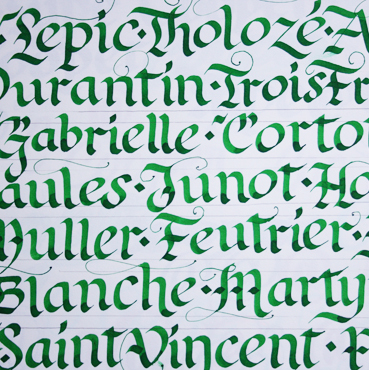 ·Lepic·Tholozé·A
Durantin·TroisFr
Gabrielle·Corto
aules·Junot·Ho
Muller·Feutrier·
Blanche·Marty
Saint Vincent·P